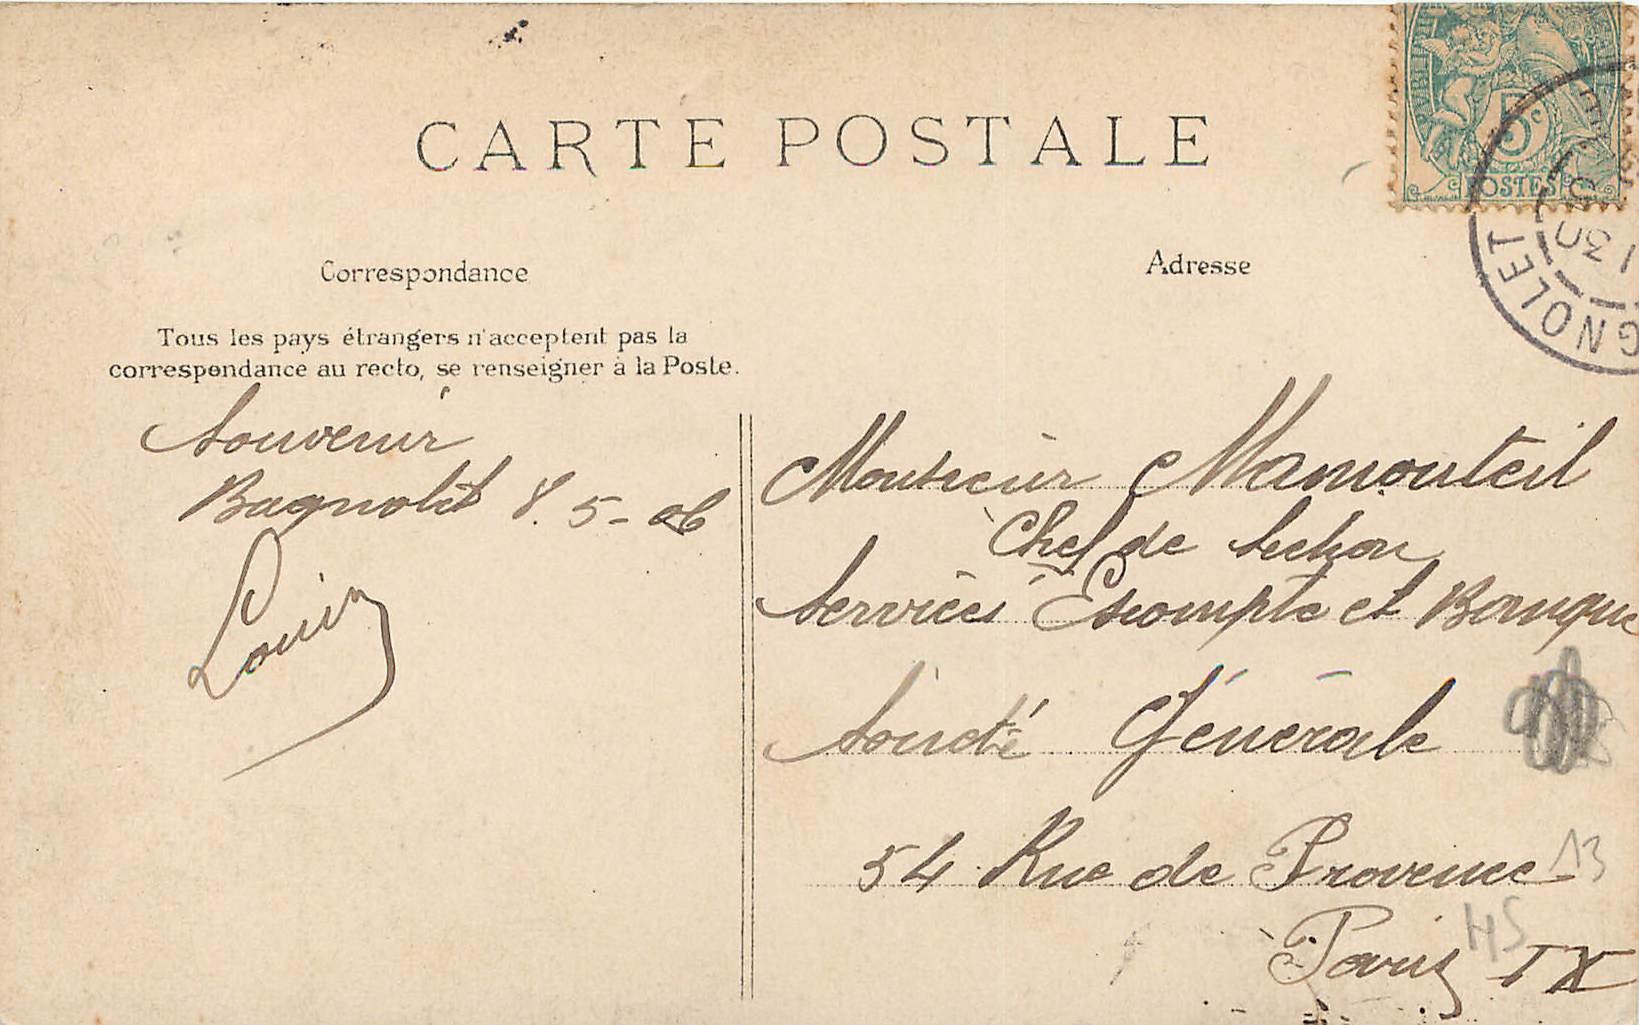 CARTE POSTALE
Correspondance
Adresse
Tous les pays étrangers n'acceptent pas la
correspondance au recto, se renseigner à la Poste.
Souvenir
Bagnolet 8.5-06
Louis
Monsieur Mamouteil
Chef de section
Services Escompte et Banque
Société Générale
54 Rue de Provence
Paris IX
13
HS
5c
POSTES
GNOLET